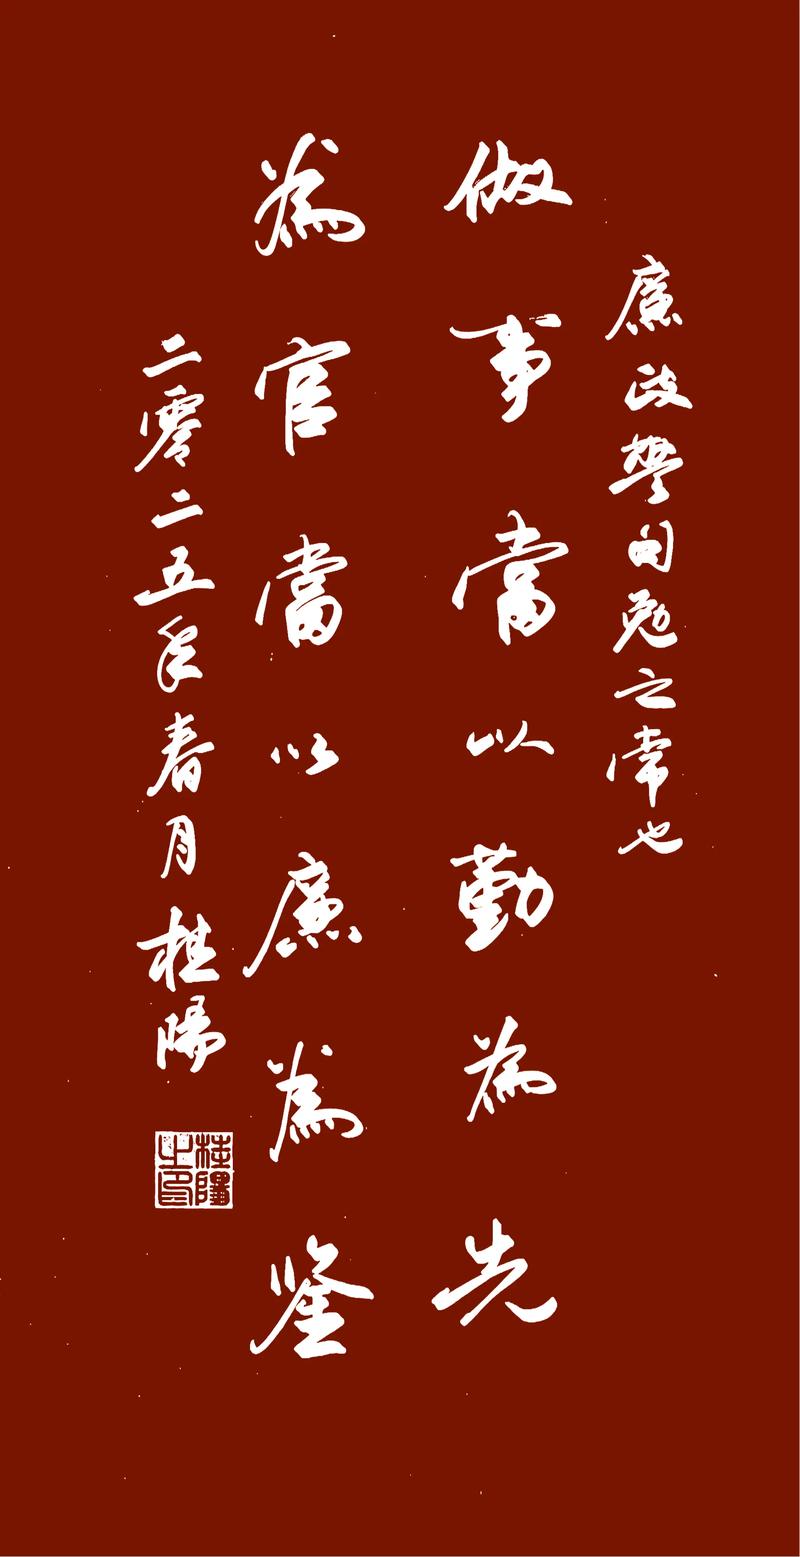 廉政警句勉之常也
做事當以勤為先
為官當以廉為鉴
二零二五年春月桂陽
桂陽之印